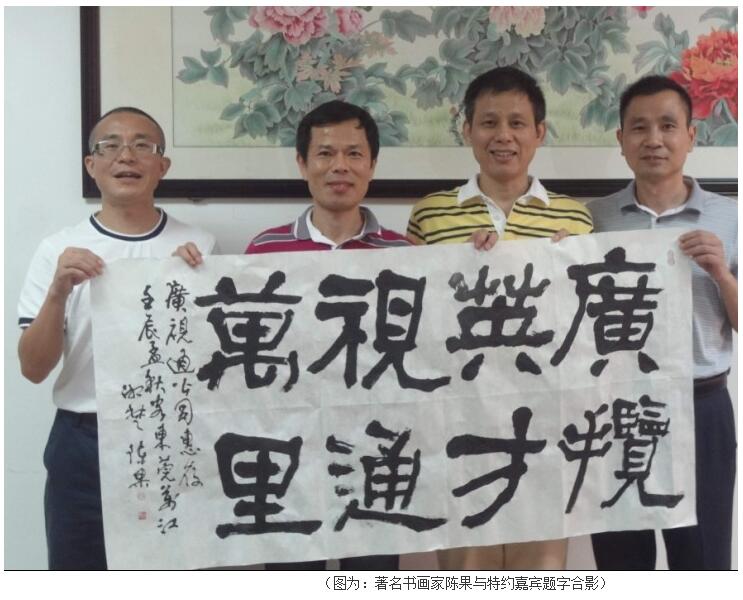 廣攬
英才
視通
萬里
廣視通公司惠存
壬辰孟秋客東莞萬江
湘楚 陳果
（图为：著名书画家陈果与特约嘉宾题字合影）